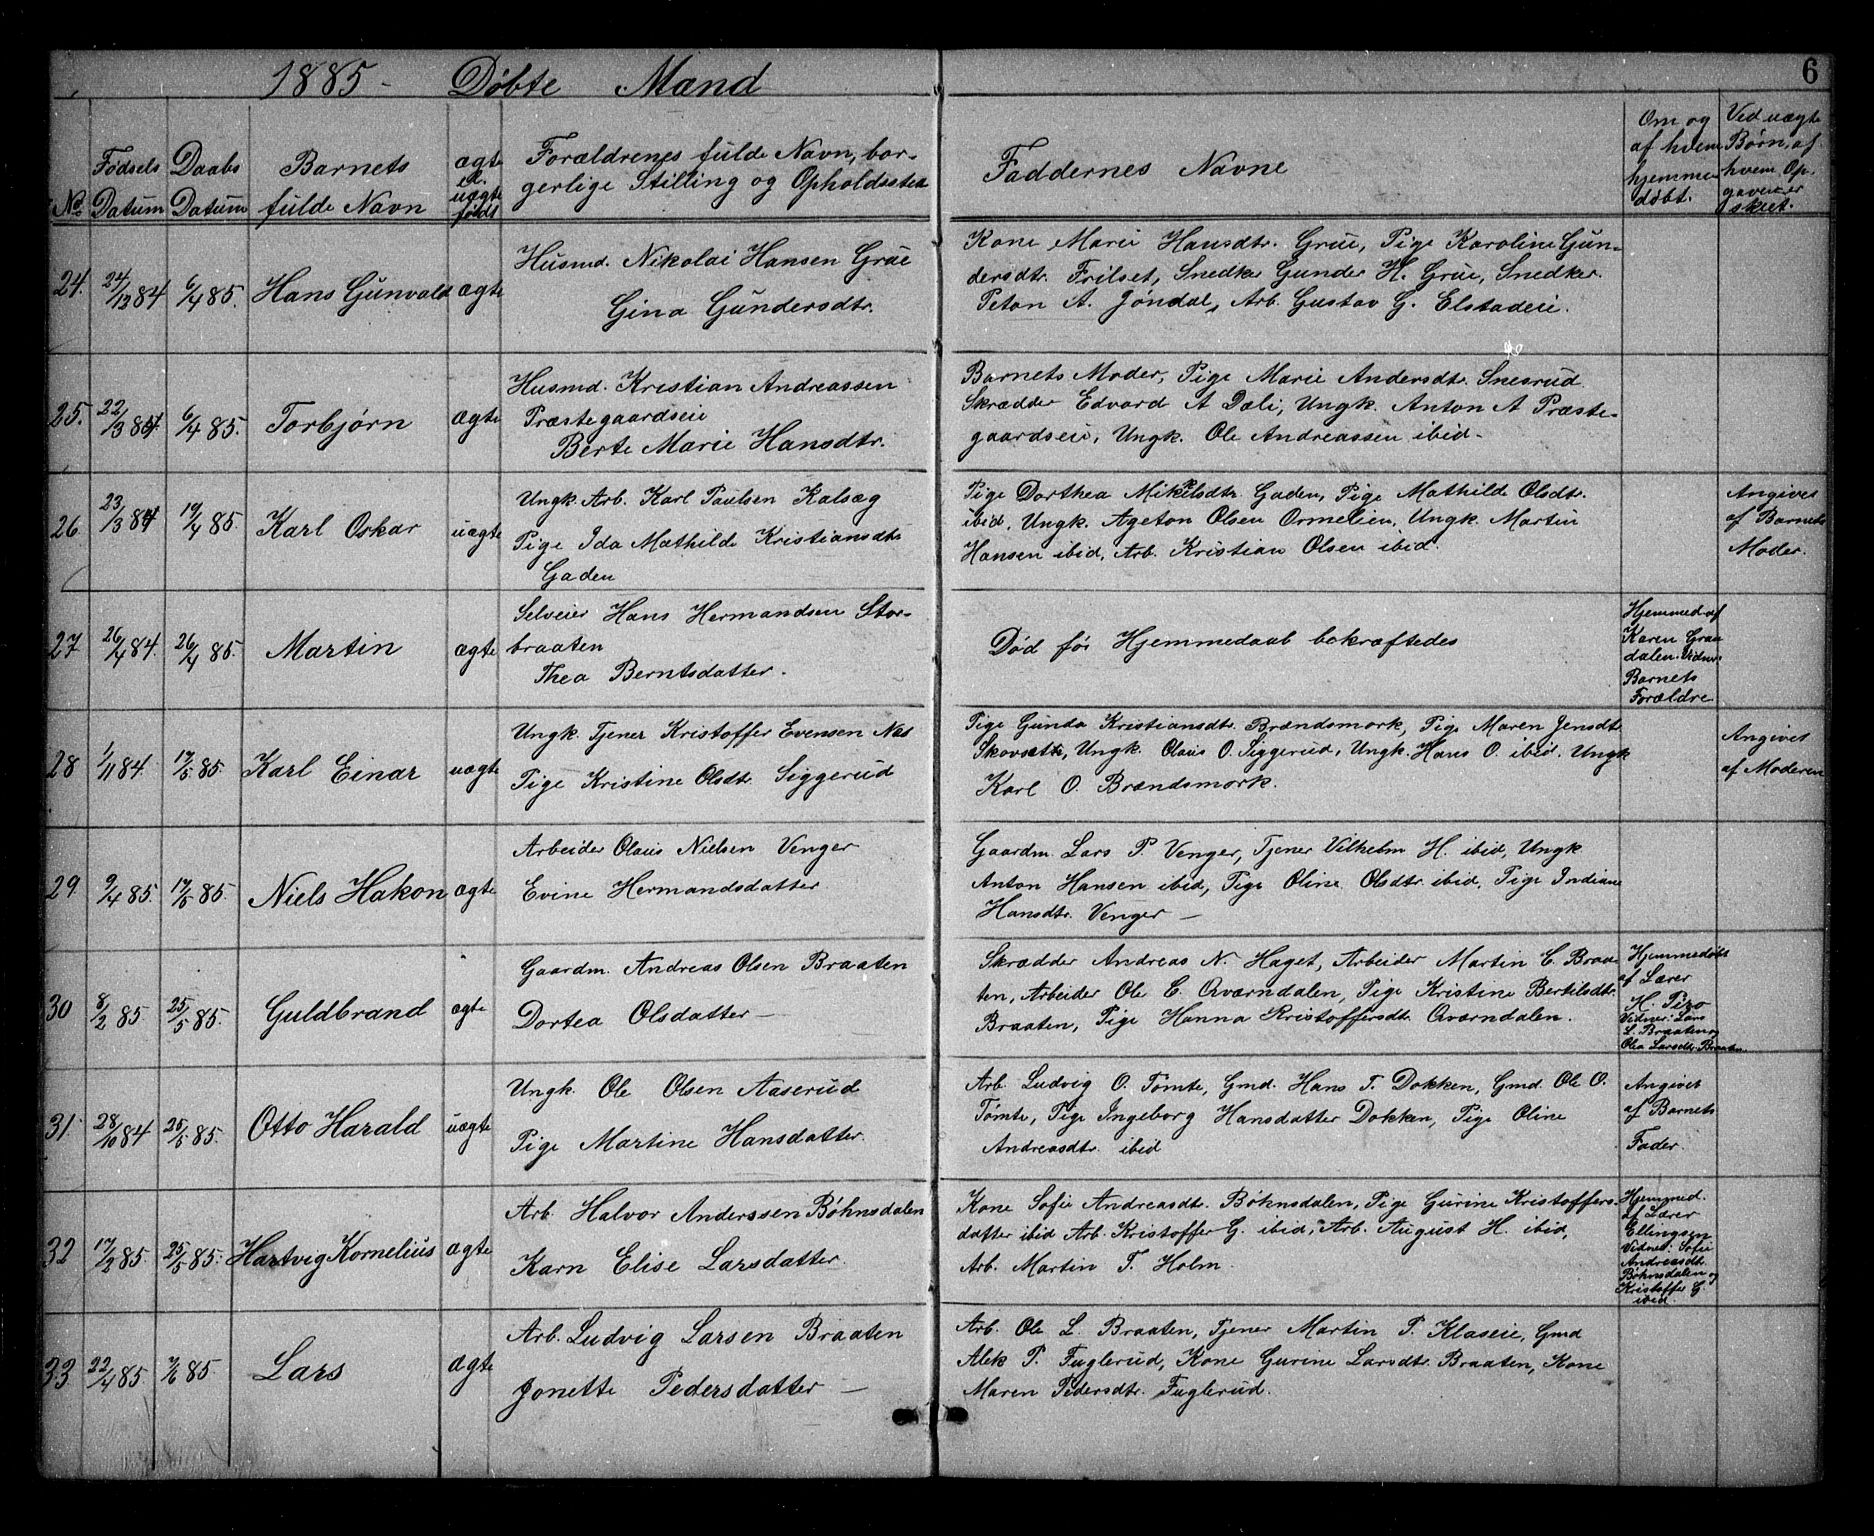 1885 - Døbte Mænd
6
No
Fødsels
Datum
Daabs
Datum
Barnets
fulde Navn
ægte
el.
uægte
født
Forældrenes fulde Navn, bor-
gerlige Stilling og Opholdssted
Faddernes Navne
Om og
af hvem
hjemme
døbt.
Ved uægte
Børn, af
hvem Op-
gaven er
skeet.
24.
24/12 84
6/4 85.
Hans Gunvald
ægte
Husmd. Nikolai Hansen Grue
Gina Gundersdtr.
Kone Marie Hansdtr. Grue, Pige Karoline Gun-
dersdtr. Frilset, Snedker Gunder H. Grue, Snedker
Peton A. Jøndal, Arb. Gustav G. Elstadeie.
25.
22/3 84
6/4 85.
Torbjørn
ægte
Husmd. Kristian Andreassen
Præstegaardseie
Berte Marie Hansdtr.
Barnets Moder, Pige Marie Andersdtr. Snesrud
Skrædder Edvard A Dæli, Ungk. Anton A Præste-
gaardseie, Ungk. Ole Andreassen ibid-
26
23/3 84
19/4 85.
Karl Oskar
uægte
Ungk. Arb. Karl Paulsen Kalsæg
Pige Ida Mathilde Kristiansdtr
Gaden
Pige Dorthea Mikkelsdtr Gaden, Pige Mathilde Olsdtr.
ibid, Ungk. Ageton Olsen Ormelien, Ungk. Martin
Hansen ibid, Arb. Kristian Olsen ibid.
Angivet
af Barnets
Moder.
27
26/4 84.
26/4 85.
Martin
ægte
Selveier Hans Hermandsen Stor-
braaten
Thea Berntsdatter.
Død før Hjemmedaab bekræftedes
Hjemmed. af
Karen Graa
dalen. Vidner
Barnets
Forældre
28
1/11 84.
17/5 85.
Karl Einar
uægte
Ungk. Tjener Kristoffer Evensen Næs
Pige Kristine Olsdtr. Siggerud
Pige Gunda Kristiansdtr. Brændsmork, Pige Maren Jensdtr
Skovsette, Ungk. Olaus O. Siggerud, Ungk. Hans O. ibid. Ungk
Karl O. Brændsmork.
Angivet
af Moderen
29
9/4 85.
17/5 85.
Niels Hakon
ægte
Arbeider Olaus Nielsen Venger
Evine Hermandsdatter
Gaardm. Lars P. Venger, Tjener Vilhelm H. ibid, Ungk
Anton Hansen ibid, Pige Oline Olsdtr. ibid, Pige Indiane
Hansdtr. Venger -
30
8/2 85
25/5 85.
Guldbrand
ægte
Gaardm. Andreas Olsen Braaten
Dortea Olsdatter -
Skrædder Andreas N. Haget, Arbeider Martin C. Braa-
ten, Arbeider Ole C. Qværndalen, Pige Kristine Bertilsdtr.
Braaten, Pige Hanna Kristoffersdtr. Qværndalen.
Hjemmedøbt
af Lærer
H. Piro
Vidner: Lars
L. Braaten og
Olea Larsdtr. Braaten
31
28/10 84
25/5 85.
Otto Harald
uægte
Ungk. Ole Olsen Aaserud
Pige Martine Hansdatter.
Arb. Ludvig O. Tømte, Gmd. Hans T. Dokken, Gmd. Ole O.
Tømte, Pige Ingeborg Hansdatter Dokken, Pige Oline
Andreasdtr. ibid
Angivet
af Barnets
Fader.
32
17/2 85.
25/5 85.
Hartvig Kornelius
ægte
Arb. Halvor Anderssen Bøhnsdalen
Karn Elise Larsdatter.
Kone Sofie Andreasdtr. Bøhnsdalen, Pige Gurine Kristoffers-
datter ibid Arb. Kristoffer G. ibid, Arb. August H. ibid,
Arb. Martin T. Holm.
Hjemmed.
af Lærer
Ellingsen
Vidner: Sofie
Andreasdtr.
Bøhnsdalen og
Kristoffer G.
ibid.
33
22/4 85
7/6 85.
Lars
ægte
Arb. Ludvig Larsen Braaten
Jonette Pedersdatter -
Arb. Ole L. Braaten, Tjener Martin P. Klaseie, Gmd
Alek P. Fuglerud, Kone Gurine Larsdtr. Braaten, Kone
Maren Pedersdtr. Fuglerud.